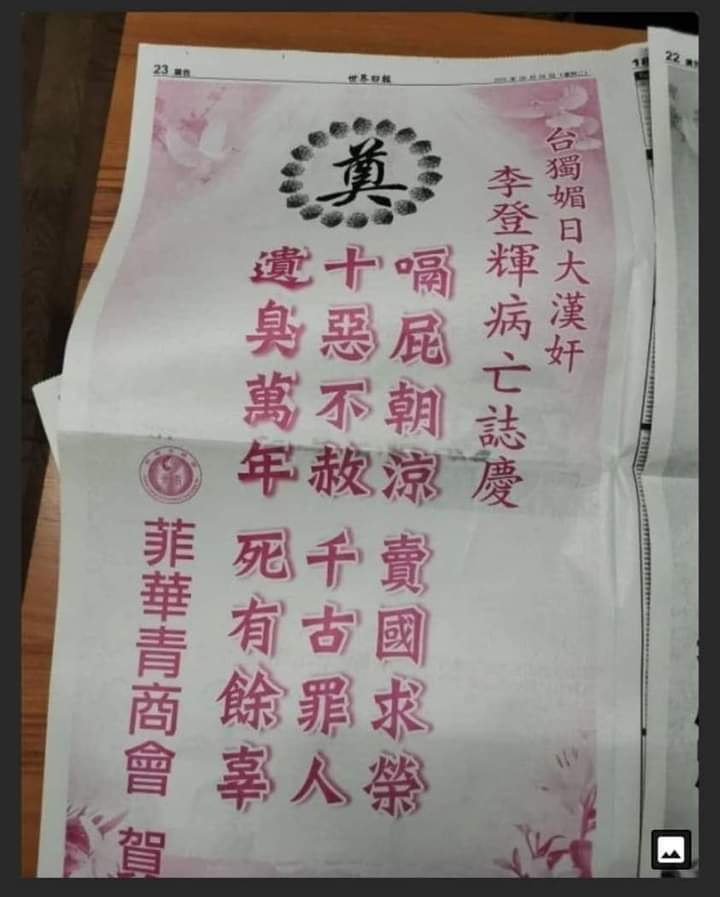 23 廣告
世界日報
22
奠
台獨媚日大漢奸
李登輝病亡誌慶
嗝屁朝涼 賣國求榮
十惡不赦 千古罪人
遺臭萬年 死有餘辜
菲華青商會 賀